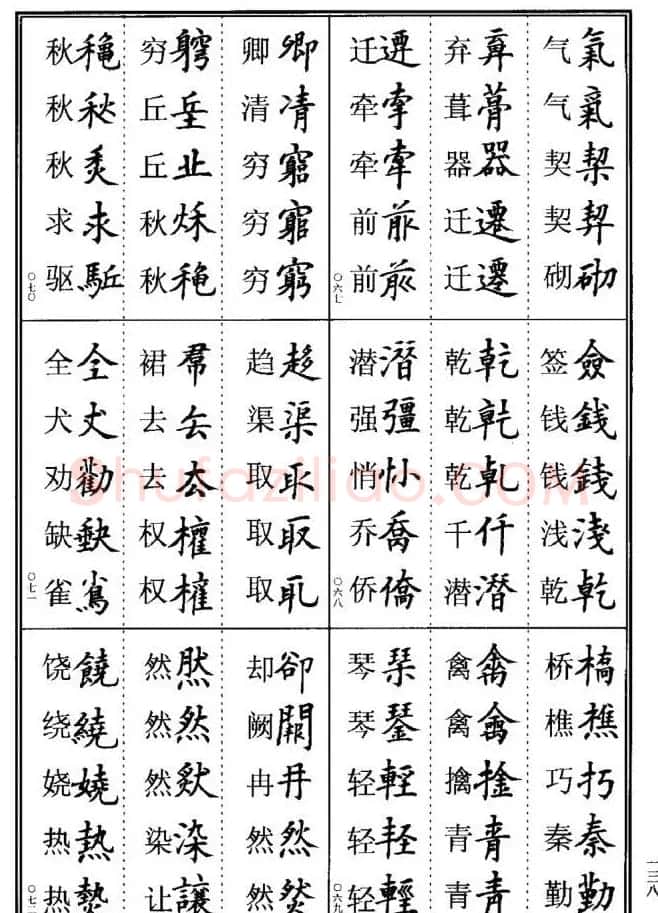 气氣 气氣 契契 契契 砌砌
弃弃 葺葺 器器 迁遷 迁遷
迁遷 牵牽 牵牽 前前 前前
〇六七
签僉 钱錢 钱錢 浅淺 乾乾
乾乾 乾乾 乾乾 千仟 潜潛
潜潛 强彊 悄悄 乔喬 侨僑
〇六八
桥槁 樵樵 巧巧 秦秦 勤勤
禽禽 禽禽 擒捦 青青 青青
琴琹 琴琴 轻輕 轻軽 轻輕
〇六九
卿卿 清凊 穷窮 穷窮 穷窮
穷竆 丘丘 丘丘 秋秋 秋穐
秋龝 秋秋 秋秌 求求 驱駈
〇七〇
趋趍 渠渠 取取 取取 取取
裙帬 去去 去去 权權 权權
全仝 犬犬 劝勸 缺缺 雀雀
〇七一
却卻 阙闕 冉冉 然然 然然
然然 然然 然然 染染 让讓
饶饒 绕繞 娆嬈 热熱 热熱
〇七二
一三八
Shufaziliao.COM